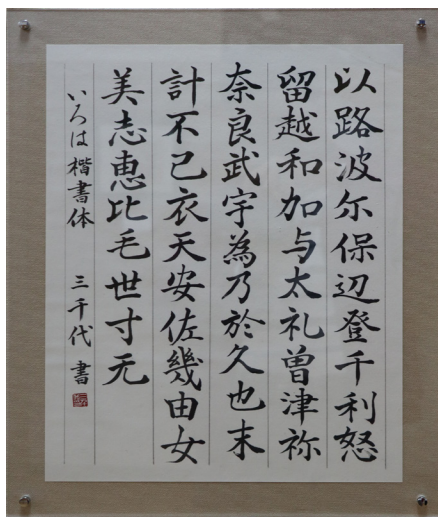 以路波尔保辺登千利怒
留越和加与太礼曽津祢
奈良武宇為乃於久也末
計不己衣天安佐幾由女
美志恵比毛世寸无
いろは楷書体 三千代 書